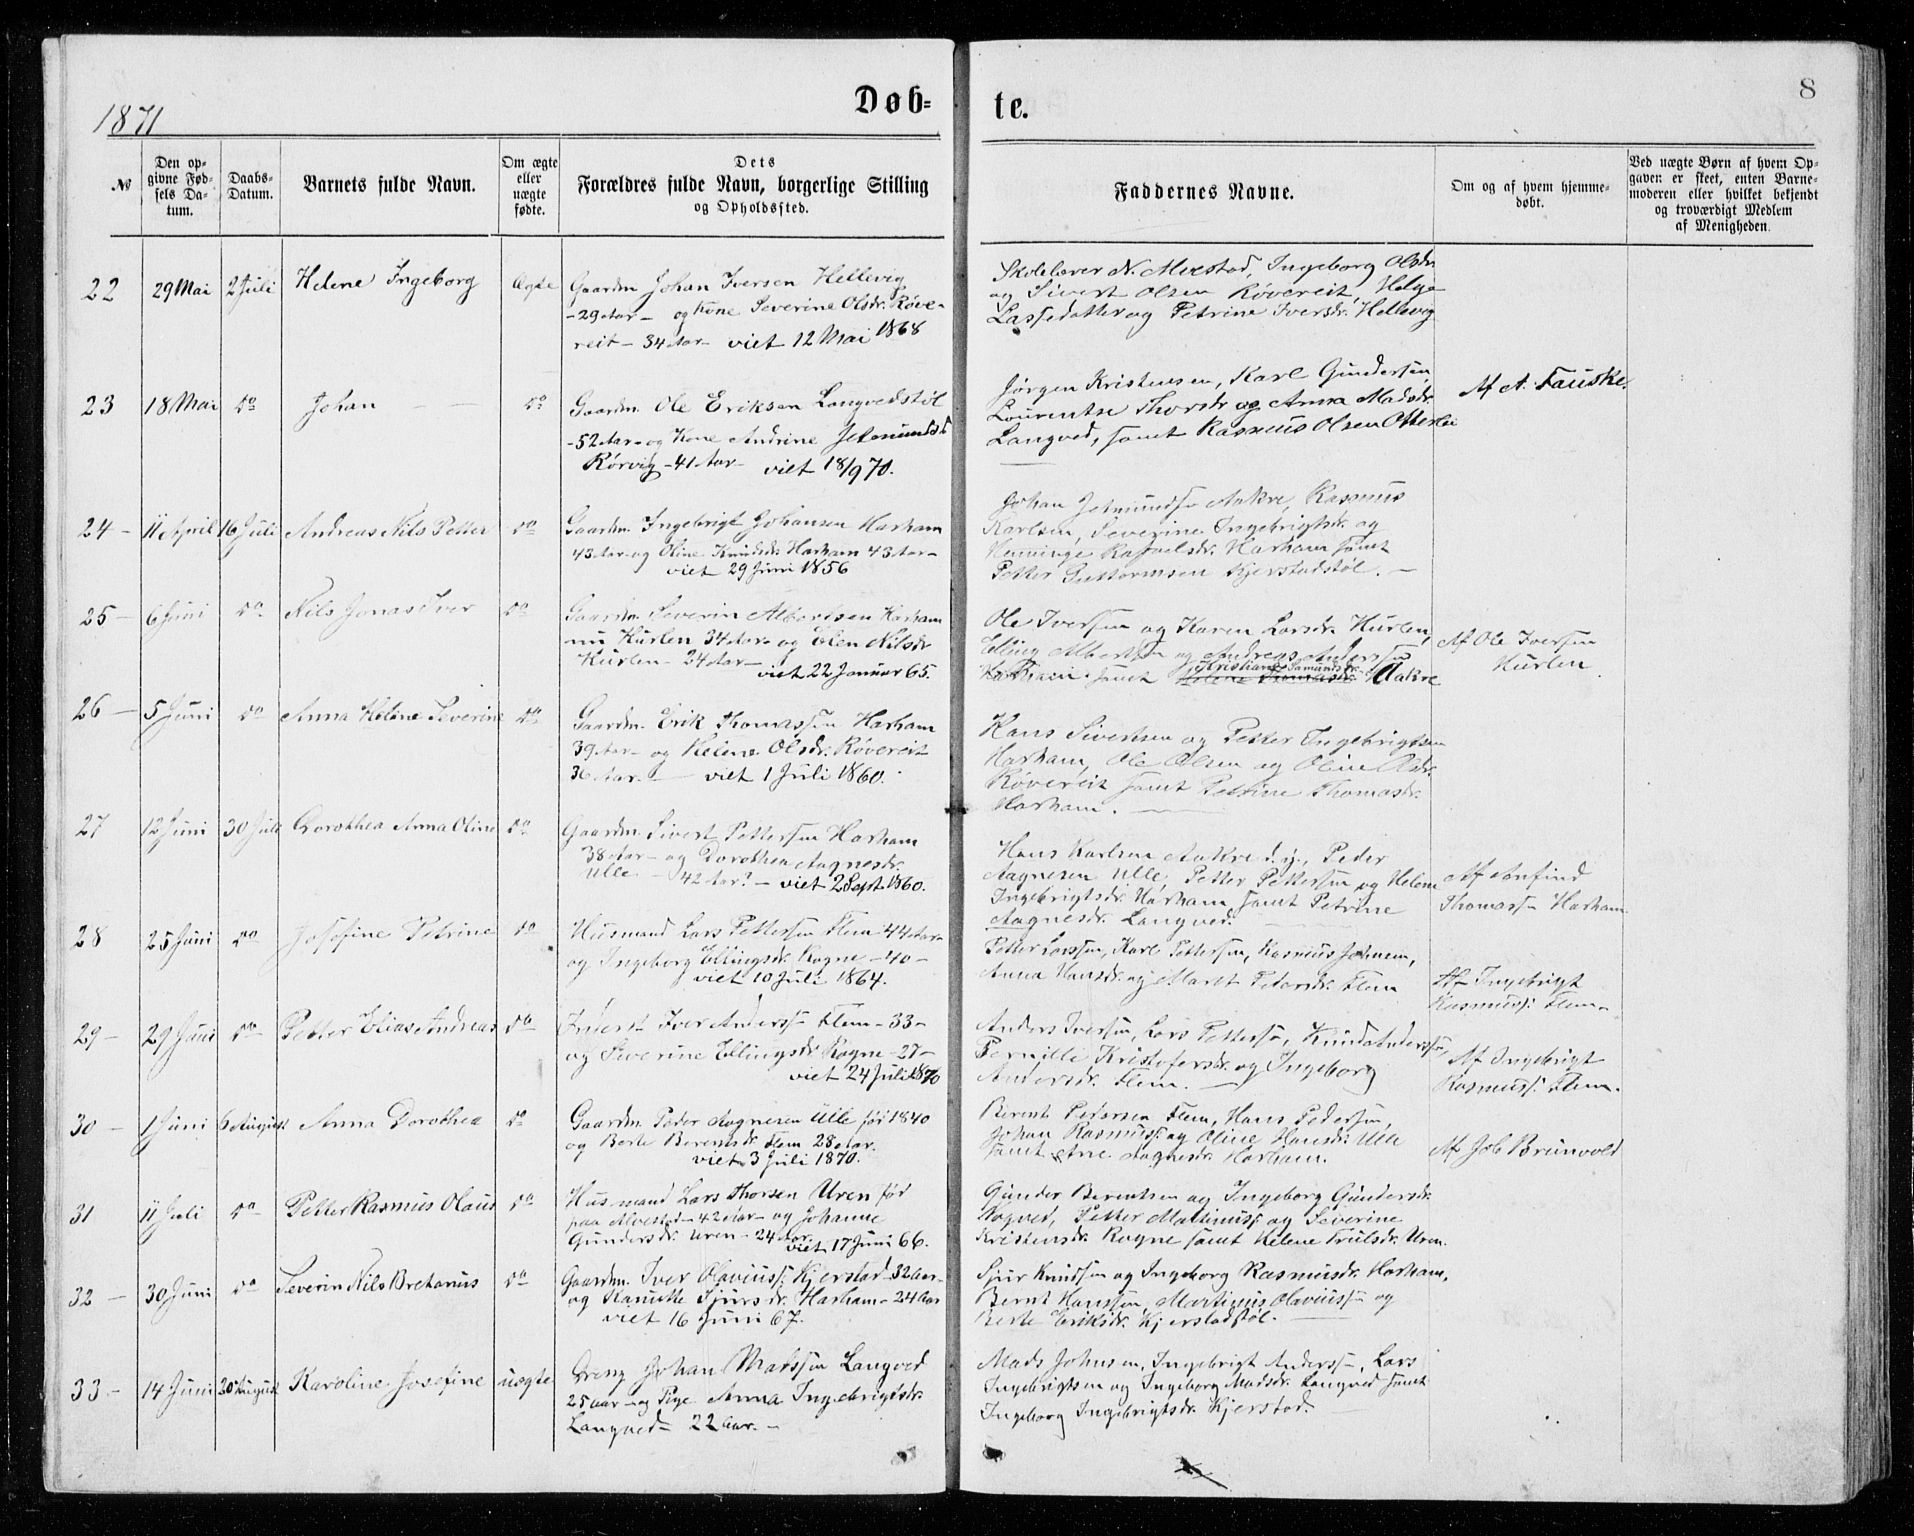 1871
Døb-
te.
8
№
Den op-
givne Fød-
sels Da-
tum.
Daabs-
Datum.
Barnets fulde Navn.
Om ægte
eller
uægte
fødte.
Dets
Forældres fulde Navn, borgerlige Stilling
og Opholdssted.
Faddernes Navne.
Om og af hvem hjemme-
døbt.
Ved uægte Børn af hvem Op-
gaven er skeet, enten Barne-
moderen eller hvilket bekjendt
og troværdigt Medlem
af Menigheden.
22 29 Mai 2 Juli Helene Ingeborg Ægte
Gaardm. Johan Iversen Hellevig
-29 Aar- og Kone Severine Olsdr. Røve-
reit - 34 Aar - viet 12 Mai 1868
Skolelærer N. Alvestad, Ingeborg Olsdr
og Sivert Olsen Røvereit, Helga
Lassedatter og Petrine Iversdr. Hellevig
23 18 Mai do Johan do
Gaardm. Ole Eriksen Langvedstøl
-52 Aar- og Kone Andrine Jetmundsd
Rørvig - 41 Aar - viet 18/9 70.
Jørgen Kristensen, Karl Gundersen,
Laurentse Thorsdr og Anna Madsdr.
Langved, samt Rasmus Olsen Otterlei
Af A. Fauske.
24 - 11 April 16 Juli Andreas Nils Petter do
Gaardm. Ingebrigt Johansen Harham
43 Aar - og Oline Knudsdr. Harham 43 Aar -
viet 29 Juni 1856
Johan Jetmundsen Aakre, Rasmus
Karlsen, Severine Ingebrigtsdr. og
Rasmusdr. Harham samt
Petter Guttormsen Kjerstadstøl. -
25 - 6 Juni do Nils Jonas Iver do
Gaardm. Severin Albertsen Harham
nu Hurlen 34 Aar og Elen Nilsdr
Hurlen - 24 Aar -
viet 22 Januar 65.
Ole Iversen og Karen Larsdr. Hurlen,
Elling Albertsen og Andreas Anderssen
Harham samt Kristiane Samundsdr. Aakre
Af Ole Iversen
Hurlen.
26 - 5 Juni do Anna Heline Severine do
Gaardm. Erik Thomassen Harham
39 Aar - og Heline Olsdr. Røvereit
36 Aar. - viet 1 Juli 1860.
Hans Sivertsen og Petter Ingebrigtsen
Harham, Ole Olsen og Oline Olsdr.
Røvereit samt Petrine Thomasdr.
Harham.
27 12 Juni 30 Juli Dorothea Anna Oline do
Gaardm. Sivert Pettersen Harham
38 Aar - og Dorothea Aagnesdr.
Ulle - 42 Aar? - viet 2 Sept. 1860.
Hans Karlsen Aakre d. y., Peder
Aagnesen Ulle, Petter Pettersen og Helene
Ingebrigtsdr. Harham samt Petrine
Aagnesdr. Langved.
Af Arnfind
Thomassen Harham
28 25 Juni do Josefine Petrine do
Husmand Lars Pettersen Flem 44 Aar -
og Ingeborg Ellingsdr. Rogne - 40 -
viet 10 Juli 1864.
Petter Larssen, Karl Pettersen, Rasmus Johnsen,
Anna Hansdr. og Marit Pedersdr. Flem
Af Ingebrigt
Rasmuss: Flem.
29 - 29 Juni do Petter Elias Andreas do
Inderst Iver Anderssen Flem - 33 -
og Severine Ellingsdr. Rogne - 27 -
viet 24 Juli 1870
Anders Iversen, Lars Pettersen, Knud Anderssen,
Pernille Kristofersdr. og Ingeborg
Andersdr. Flem.
Af Ingebrigt
Rasmuss: Flem.
30 - 1 Juni 6 August Anna Dorothea do
Gaardm. Peder Aagnesen Ulle før 1840
og Berte Berentsdr. Flem 28 Aar.
viet 3 Juli 1870.
Berent Petersen Flem, Hans Pedersen,
Johan Rasmuss: og Oline Hansdr. Ulle
samt Ane Aagnesdr. Harham.
Af Job Brunvold
31 11 Juli do Petter Rasmus Olaus do
Husmand Lars Thorsen Uren før
paa Alvestad - 42 Aar - og Johanne
Gundersdr. Uren - 24 Aar.
viet 17 Juni 66.
Gunder Berentsen og Ingeborg Gundersdr.
Petter Martinuss: og Severine
Kristensdr. Rogne samt Helene Trulsdr. Uren.
32 - 30 Juni do Severin Nils Bretanus do
Gaardm. Iver Olaviuss: Kjerstad - 32 Aar -
og Hanutte Sjursdr. Harham - 24 Aar
viet 16 Juni 67.
Sjur Knudsen og Ingeborg Rasmusdr. Harham,
Bernt Hanssen, Martinus Olaviussen og
Berte Eriksdr. Kjerstadstøl.
33 - 14 Juni 20 August Karoline Josefine uægte
Dreng Johan Madssen Langved
25 aar - og Pige Anna Ingebrigtsdr.
Langved - 22 aar. -
Mads Johnsen, Ingebrigt Anderssen, Lars
Ingebrigtsen og Ingeborg Madsdr. Langved samt
Ingeborg Ingebrigtsdr. Kjerstad.